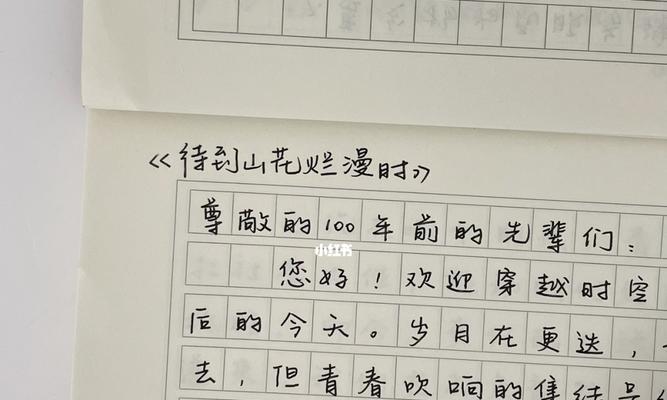 《待到山花烂漫时》
尊敬的100年前的先辈们：
小红书
您好！欢迎穿越时空
后的今天。岁月在更迭，
去，但青春吹响的集结号